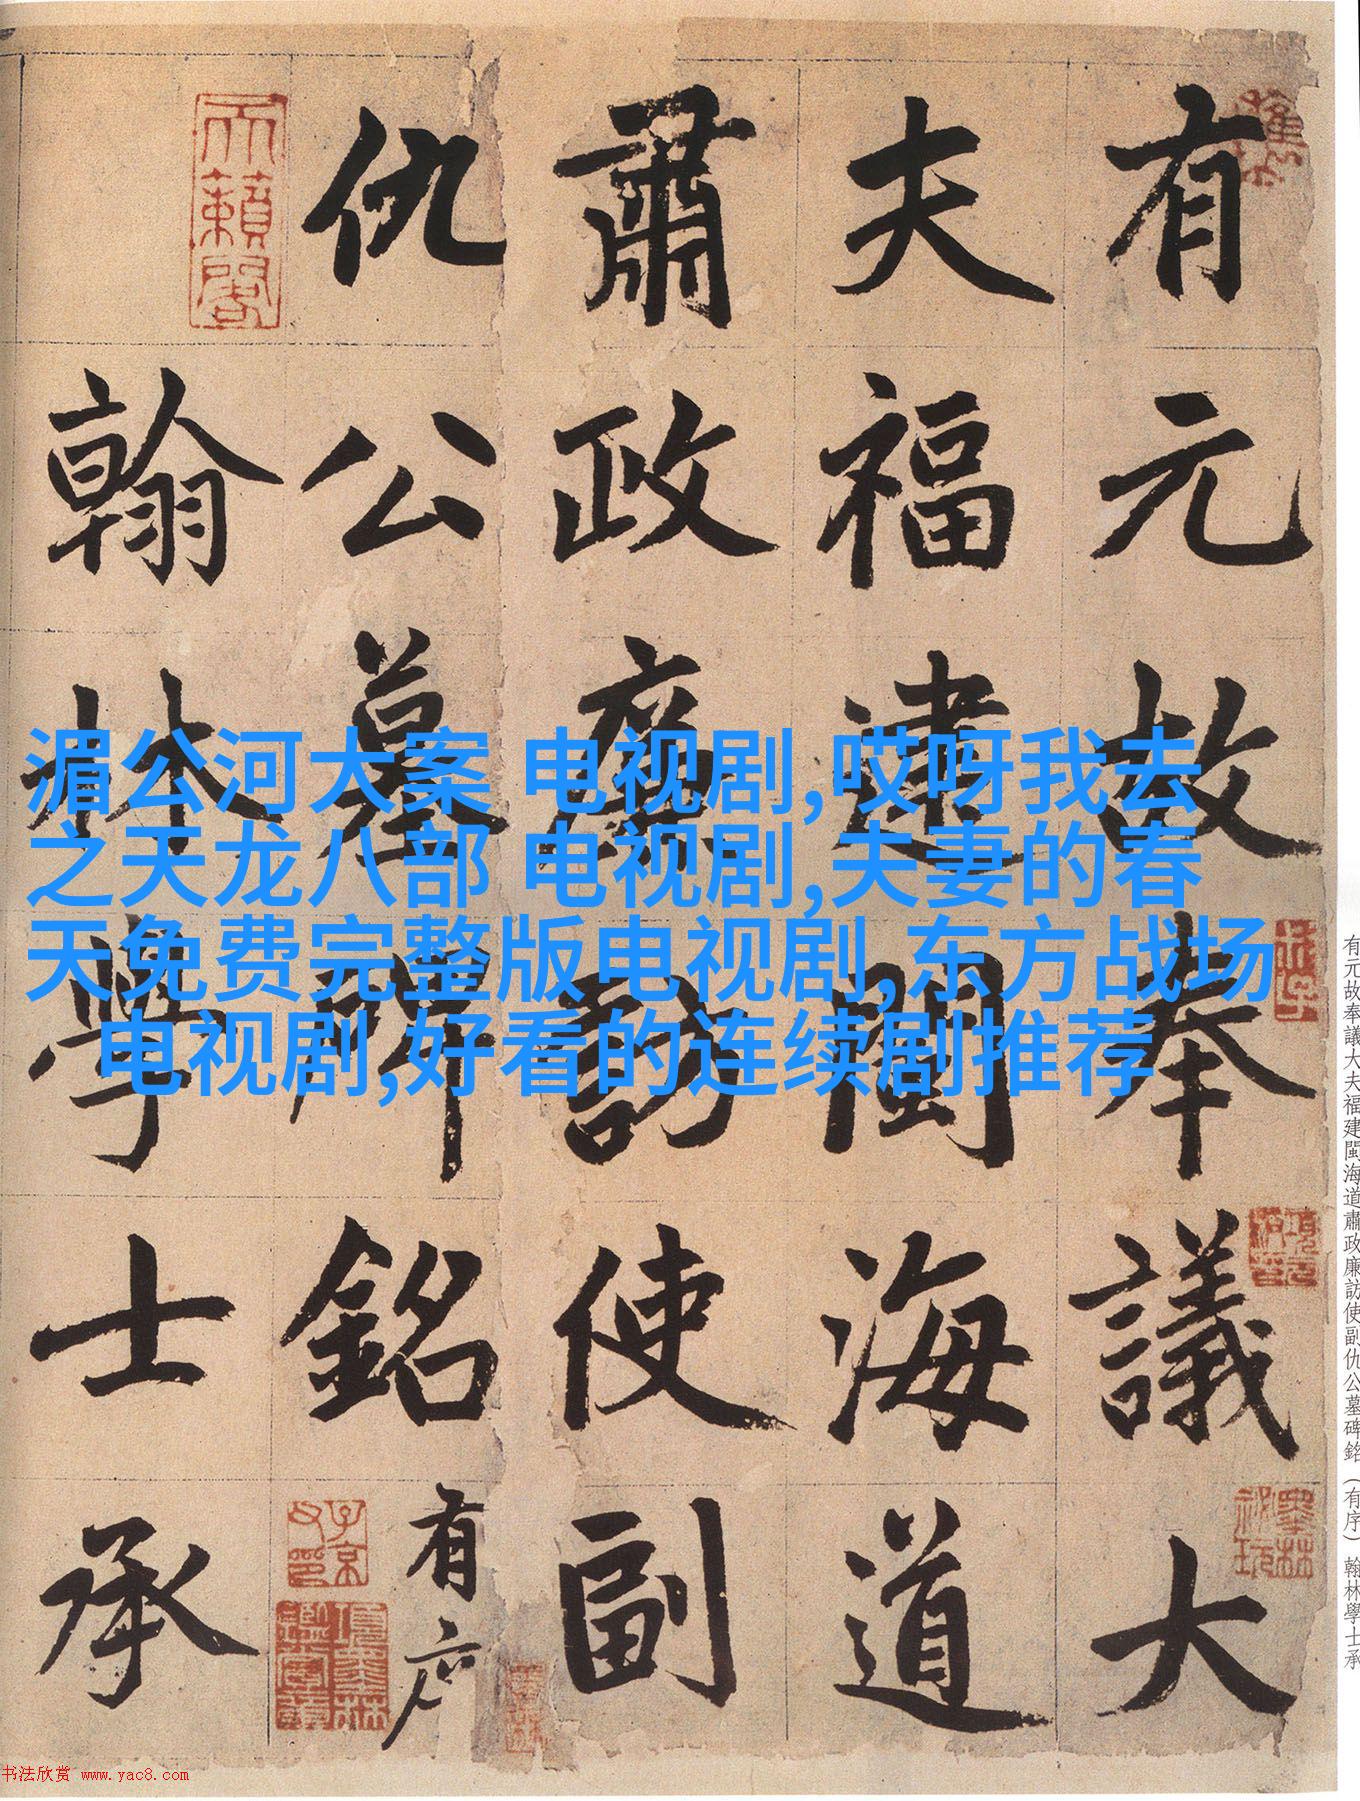 有元故奉議大
夫福建閩海道
肅政廉訪使副
仇公墓碑銘有序
翰林學士承
湄公河大案 电视剧,哎呀我去
之天龙八部 电视剧,夫妻的春
天免费完整版电视剧,东方战场
电视剧,好看的连续剧推荐
有元故奉議大夫福建閩海道肅政廉訪使副仇公墓碑銘（有序）翰林學士承
天籟閣
子京父印
墨林祕玩
书法欣赏 www.yac8.com